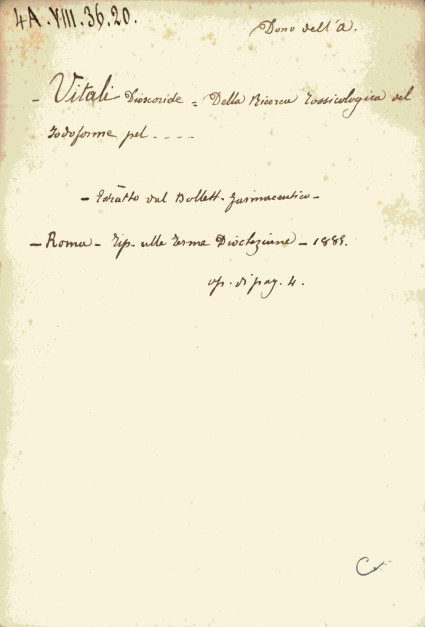 4A.VIII.36.20.
Dono dell'A.
- Vitali Dioscoride = Della Ricerca Tossicologica del
Iodoforme pel - - - -
- Estratto dal Bollett. farmaceutico -
- Roma - Tip. alle Terme Diocleziane - 1885.
op. di pag. 4.